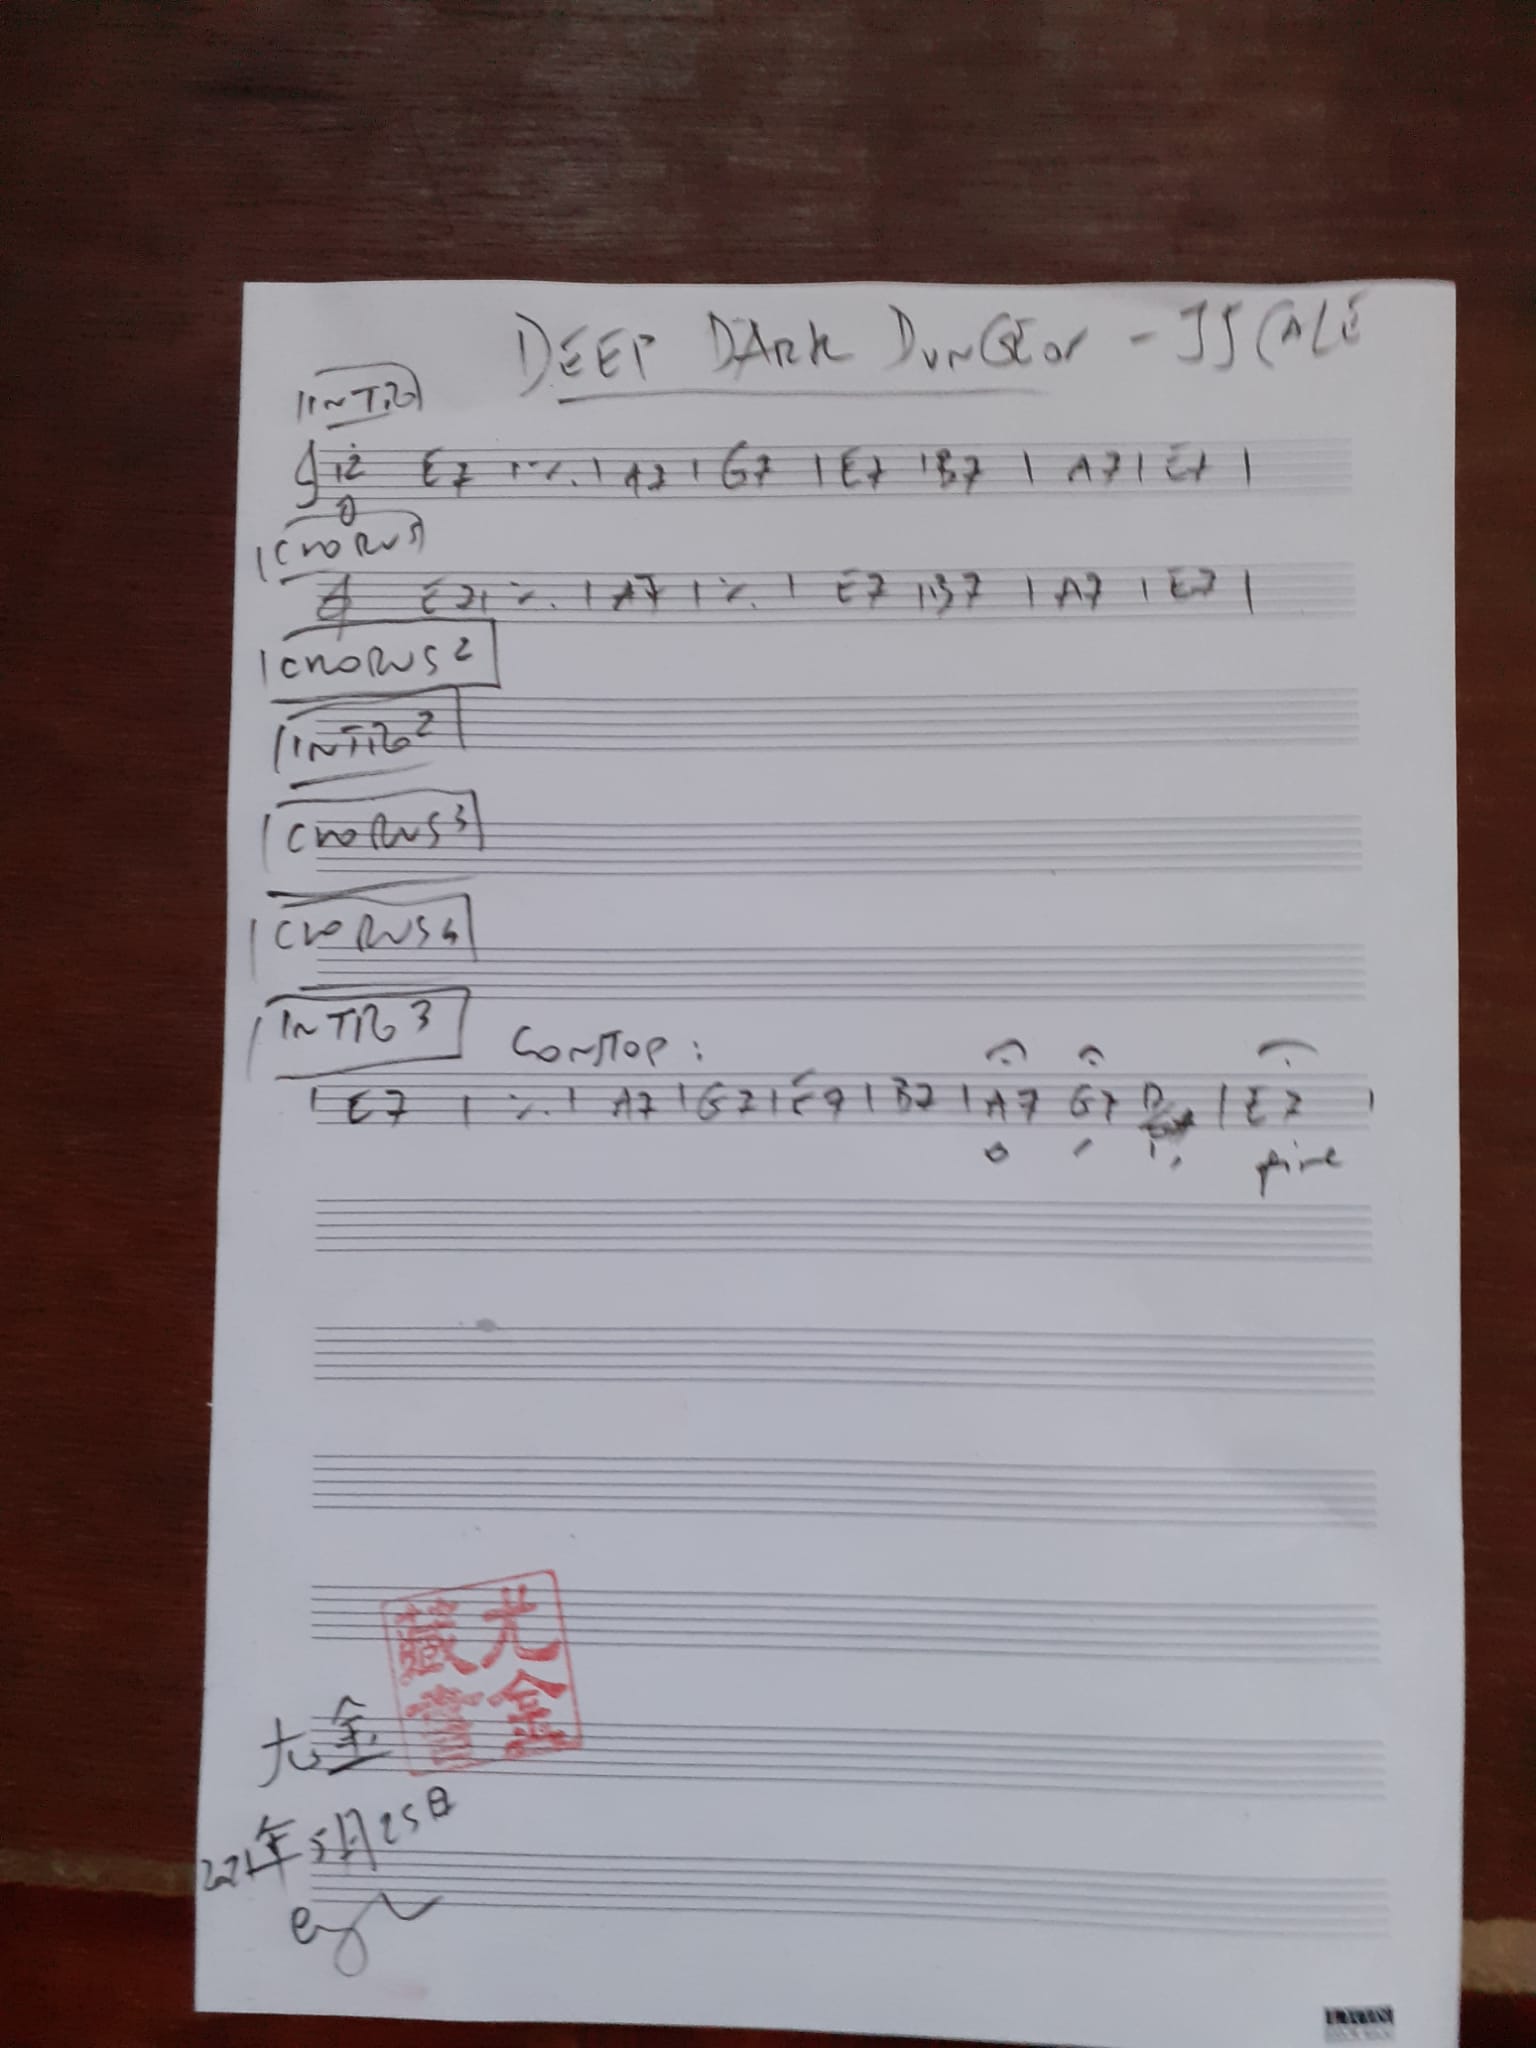 DEEP DARK DUNGEON - JJ CALE
INTRO
12 E7 | ٪ | A7 | G7 | E7 | B7 | A7 | E7 |
8
CHORUS
E7 | ٪ | A7 | ٪ | E7 | B7 | A7 | E7 |
CHORUS 2
INTRO 2
CHORUS 3
CHORUS 4
INTRO 3
CON STOP:
| E7 | ٪ | A7 | G7 | E7 | B7 | A7 G7 D | E7 |
fine
尤金
藏書
尤金
2021年5月25日